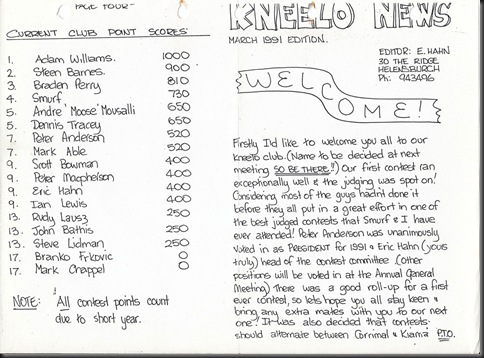 PAGE FOUR
CURRENT CLUB POINT SCORES
1. Adam Williams. 1000
2. Steen Barnes. 900
3. Braden Perry 810
4. Smurf 730
5. Andre 'Moose' Mousalli 650
5. Dennis Tracey 650
7. Peter Anderson 520
7. Mark Able 520
9. Scott Bowman 400
9. Peter Macpherson 400
9. Eric Hahn 400
9. Ian Lewis 400
13. Rudy Lausz 250
13. John Bathis 250
13. Steve Lidman 250
17. Branko Frkovic 0
17. Mark Chappel 0
NOTE: All contest points count
due to short year.
KNEELO NEWS
MARCH 1991 EDITION.
EDITOR: E. HAHN
30 THE RIDGE
HELENSBURGH
Ph: 943496
WELCOME!
Firstly I'd like to welcome you all to our
kneelo club. (Name to be decided at next
meeting SO BE THERE!!) Our first contest ran
exceptionally well & the judging was spot on!
Considering most of the guys hadn't done it
before they all put in a great effort in one of
the best judged contests that Smurf & I have
ever attended! Peter Anderson was unanimously
voted in as PRESIDENT for 1991 & Eric Hahn (yours
truly) head of the contest committee. (other
positions will be voted in at the Annual General
Meeting) There was a good roll-up for a first
ever contest, so lets hope you all stay keen &
bring any extra mates with you to our next
one! It was also decided that contests
should alternate between Corrimal & Kiama P.T.O.